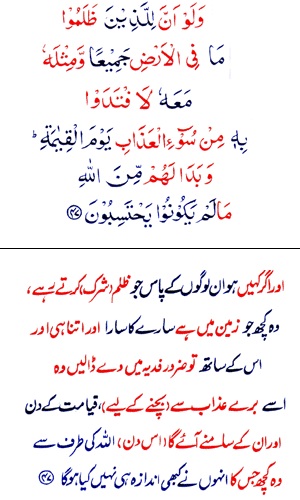 وَلَوْ اَنَّ لِلَّذِيْنَ ظَلَمُوْا
مَا فِي الْاَرْضِ جَمِيْعًا وَّمِثْلَهٗ
مَعَهٗ لَا فْتَدَوْا
بِهٖ مِنْ سُوْٓءِ الْعَذَابِ يَوْمَ الْقِيٰمَةِ ؕ
وَبَدَا لَهُمْ مِّنَ اللّٰهِ
مَا لَمْ يَكُوْنُوْا يَحْتَسِبُوْنَ ﴿۴۷﴾
اور اگر کہیں ہو ان لوگوں کے پاس جو ظلم (شرک) کرتے رہے،
وہ کچھ جو زمین میں ہے سارے کا سارا اور اتنا ہی اور
اس کے ساتھ تو ضرور فدیہ میں دے ڈالیں وہ
اسے برے عذاب سے (بچنے کے لیے)، قیامت کے دن
اور ان کے سامنے آئے گا (اس دن) اللہ کی طرف سے
وہ کچھ جس کا انہوں نے کبھی اندازہ ہی نہیں کیا ہو گا ﴿۴۷﴾